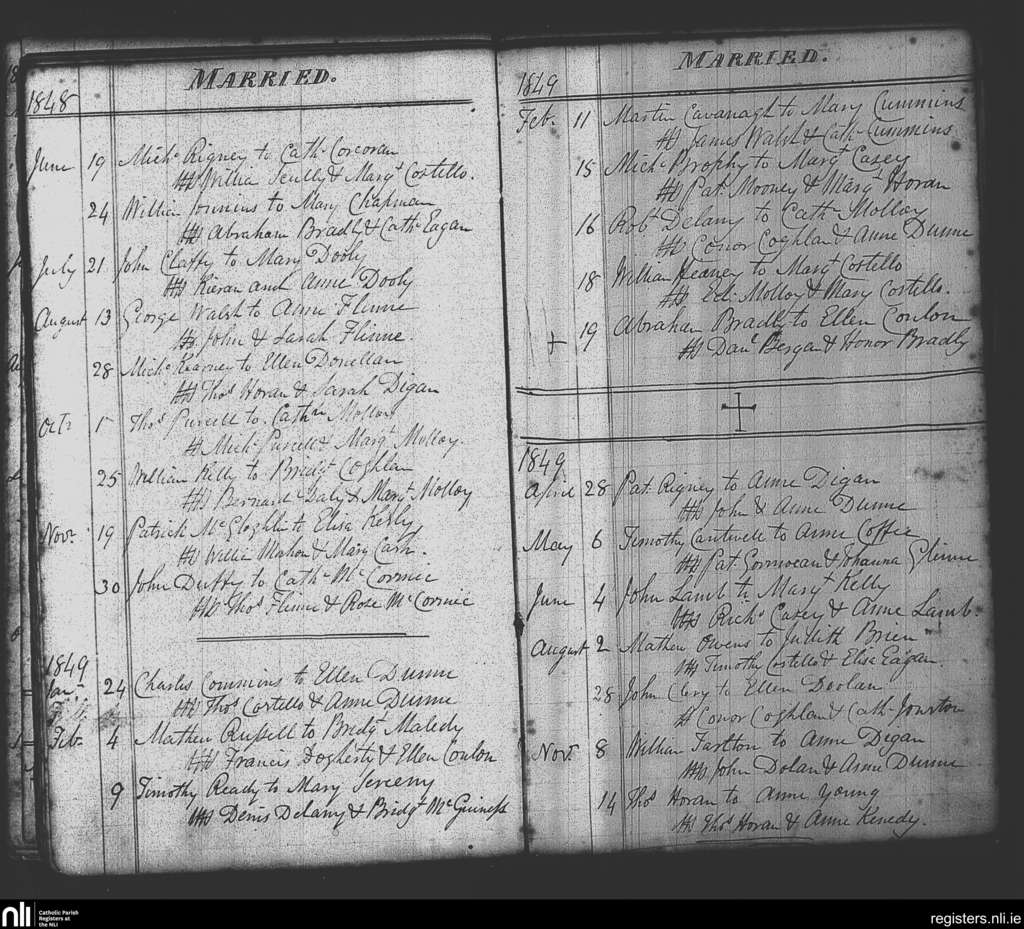 MARRIED.
1848
June 19 Mich. Rigney to Cath. Corcoran
Ws Willia Scully & Margt Costello.
24 William to Mary Chapman
Ws Abraham Bradly & Cath. Eagan
July 21 John Claffy to Mary Dooly
Ws Kieran and Anne Dooly
August 13 George Walsh to Anne Flinne
Ws John & Sarah Flinne.
28 Mich. Kearney to Ellen Donellan
Ws Thos Horan & Sarah Digan
Octr 1 Thos Purcell to Cathn Molloy
W Mich. Purcell & Margt Molloy.
25 William Kelly to Bridgt Coghlan
Ws Bernard Daly & Margt Molloy
Novr. 19 Patrick Mc Gloghlin to Elisa Kelly
Ws Willia Mahon & Mary Cash.
30 John Duffy to Cath. Mc Cormic
Ws Thos Flinne & Rose Mc Cormic
1849
Jan. 24 Charles Commins to Ellen Dunne
Ws Thos Costello & Anne Dunne
Feb. 4 Mathew Russell to Bridgt Maledy
Ws Francis Dogherty & Ellen Conlon
9 Timothy Ready to Mary
Ws Denis Delany & Bridgt Mc Guiness
MARRIED.
1849
Feb. 11 Martin Cavanagh to Mary Cummins
Ws James Walsh & Cath. Cummins
15 Mich. Brophy to Margt Casey
Ws Pat. Mooney & Margt Horan
16 Rob. Delany to Cath. Molloy
Ws Conor Coghlan & Anne Dunne
18 William Keaney to Margt Costello
Ws Ed. Molloy & Mary Costello.
+ 19 Abraham Bradly to Ellen Conlon
Ws Danl Bergan & Honor Bradly
1849
April 28 Pat. Rigney to Anne Digan
Ws John & Anne Dunne
May 6 Timothy Cantwell to Anne Coffie
Ws Pat. & Johanna Glinne
June 4 John Lamb to Mary Kelly
Ws Richd Casey & Anne Lamb.
August 2 Mathew Owens to Judith Brien
Ws Timothy Costello & Elisa Eagan.
28 John Clery to Ellen Doolan
W Conor Coghlan & Cath.
Novr. 8 William Tarlton to Anne Digan
Ws John Dolan & Anne Dunne
14 Thos Horan to Anne Young
Ws Thos Horan & Anne Kenedy.
nli Catholic Parish
Registers at
the NLI
registers.nli.ie